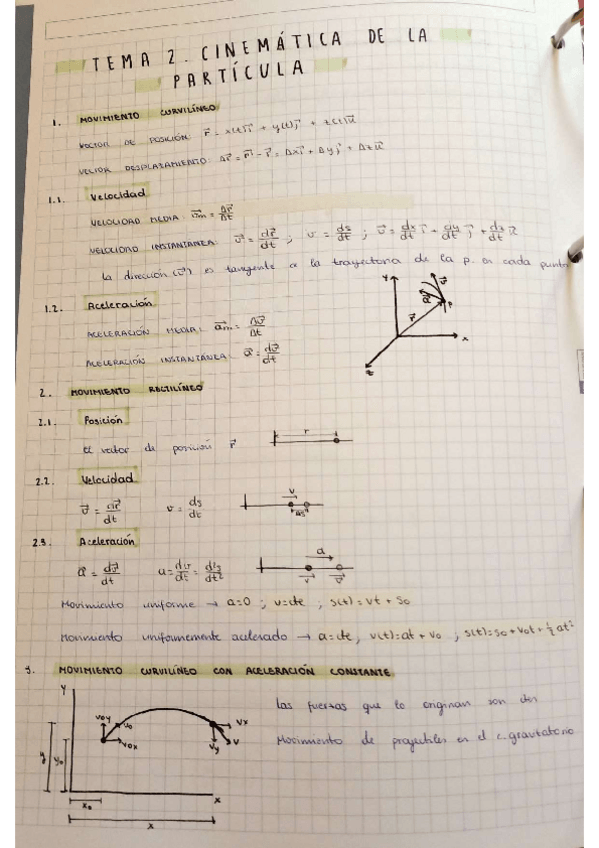 TEMA 2. CINEMÁTICA DE LA
PARTÍCULA
1. MOVIMIENTO CURVILÍNEO
VECTOR DE POSICIÓN: r⃗ = x(t)i⃗ + y(t)j⃗ + z(t)k⃗
VECTOR DESPLAZAMIENTO: Δr⃗ = r⃗' - r⃗ = Δxi⃗ + Δyj⃗ + Δzk⃗
1.1. Velocidad
VELOCIDAD MEDIA: v⃗m = Δr⃗/Δt
VELOCIDAD INSTANTÁNEA: v⃗ = dr⃗/dt ; v = ds/dt ; v⃗ = dx/dt i⃗ + dy/dt j⃗ + dz/dt k⃗
La dirección (v⃗) es tangente a la trayectoria de la p. en cada punto
1.2. Aceleración
ACELERACIÓN MEDIA: a⃗m = Δv⃗/Δt
ACELERACIÓN INSTANTÁNEA: a⃗ = dv⃗/dt
y v⃗ a⃗ P r⃗ x z
2. MOVIMIENTO RECTILÍNEO
2.1. Posición
El vector de posición r⃗
r
2.2. Velocidad
v⃗ = dr⃗/dt v = ds/dt
v Δs
2.3. Aceleración
a⃗ = dv⃗/dt a = dv/dt = d²s/dt²
a v⃗ v⃗'
Movimiento uniforme → a=0 ; v=cte , s(t) = vt + s₀
Movimiento uniformemente acelerado → a=cte, v(t)=at + v₀ , s(t)=s₀+v₀t+½at²
3. MOVIMIENTO CURVILÍNEO CON ACELERACIÓN CONSTANTE
Las fuerzas que lo originan son ctes
Movimiento de proyectiles en el c. gravitatorio
y v₀y v₀ v₀x vx vy v
y y₀
x₀ x
x